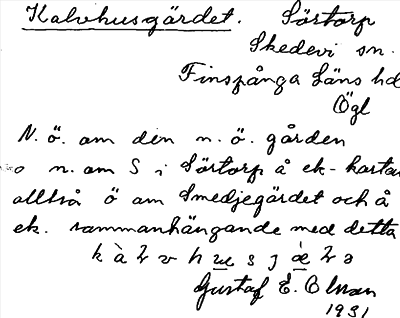 Kalvhusgärdet. Sörtorp
Skedevi sn.
Finspånga Läns hd
Ögl
N. ö. om den n. ö. gården
o n. om S i Sörtorp å ek-kartan
alltså ö om Smedjegärdet och å
ek. sammanhängande med detta
Gustaf E. Olman
1931